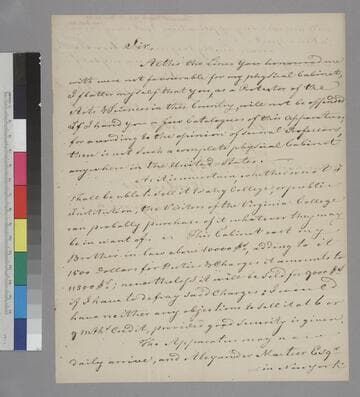 Sir,
Altho the Lines You honoured me
with were not favourable for my physical Cabinet,
I flatter myself that you, as a Protector of the
Arts & Sciences in this Country, will not be offended
if I hand you a few Catalogues of this Apparatus;
for according to the opinion of several Professors
there is not such a complete physical Cabinet
anywhere in the United States. —
As it is uncertain, whether or not I
shall be able to sell it to any College, or public
Institution, the Visitors of the Virginia College
can probably purchase of it whatever they may
be in want of. This Cabinet cost my
Brother in law about 10000 $, adding to it
1500 dollars for Duties & Charges it amounts to
11500 $; nevertheless it will be sold for 9000 $
if I have to defray said Charges;
have neither any objections to sell it at 6 or
9 mths Credit, provided good Security is given
The Apparatus may
daily arrive, and Alexander Esqr
in New York